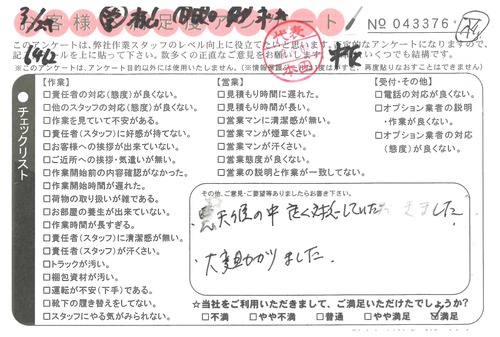 お客様満足度アンケート
No 043376
このアンケートは、弊社作業スタッフのレベル向上に役立てたいと思います。
※このアンケートは、アンケート目的以外には使用いたしません。
チェックリスト
【作業】
□責任者の対応(態度)が良くない。
□他のスタッフの対応(態度)が良くない。
□作業を見ていて不安がある。
□責任者(スタッフ)に好感が持てない。
□お客様への挨拶が出来ていない。
□ご近所への挨拶・気遣いが無い。
□作業開始前の内容確認がなかった。
□作業開始時間が遅れた。
□荷物の取り扱いが雑である。
□お部屋の養生が出来ていない。
□作業時間が長すぎる。
□責任者(スタッフ)に清潔感が無い。
□責任者(スタッフ)が汗くさい。
□トラックが汚い。
□梱包資材が汚い。
□運転が不安(下手)である。
□靴下の履き替えをしてない。
□スタッフにやる気がみられない。
【営業】
□見積もり時間に遅れた。
□見積もり時間が長い。
□営業マンに清潔感が無い。
□営業マンが煙草くさい。
□営業マンが汗くさい。
□営業態度が良くない。
□営業の説明と作業が一致してない。
【受付・その他】
□電話の対応が良くない。
□オプション業者の説明
・作業が良くない。
□オプション業者の対応
(態度)が良くない。
その他、ご意見・ご要望等ありましたらお書き下さい。
悪天候の中 良く対応していただきました
大変助かりました.
☆当社をご利用いただきまして、ご満足いただけたでしょうか?
□不満 □やや不満 □普通 □やや満足 ☑満足